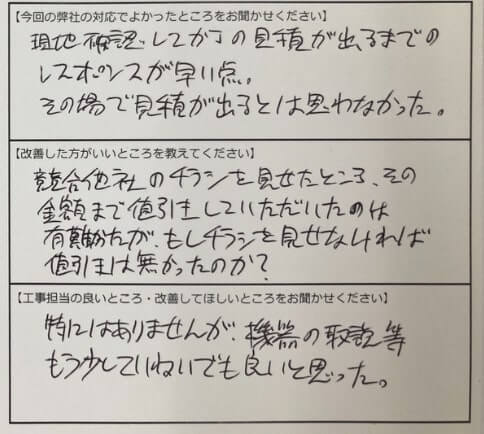 【今回の弊社の対応でよかったところをお聞かせください】
現地確認してからの見積が出るまでの
レスポンスが早い点。
その場で見積が出るとは思わなかった。
【改善した方がいいところを教えてください】
競合他社のチラシを見せたところ、その
金額まで値引きしていただいたのは
有難かたが、もしチラシを見せなければ
値引きは無かったのか?
【工事担当の良いところ・改善してほしいところをお聞かせください】
特にはありませんが、機器の取説等
もう少していねいでも良いと思った。